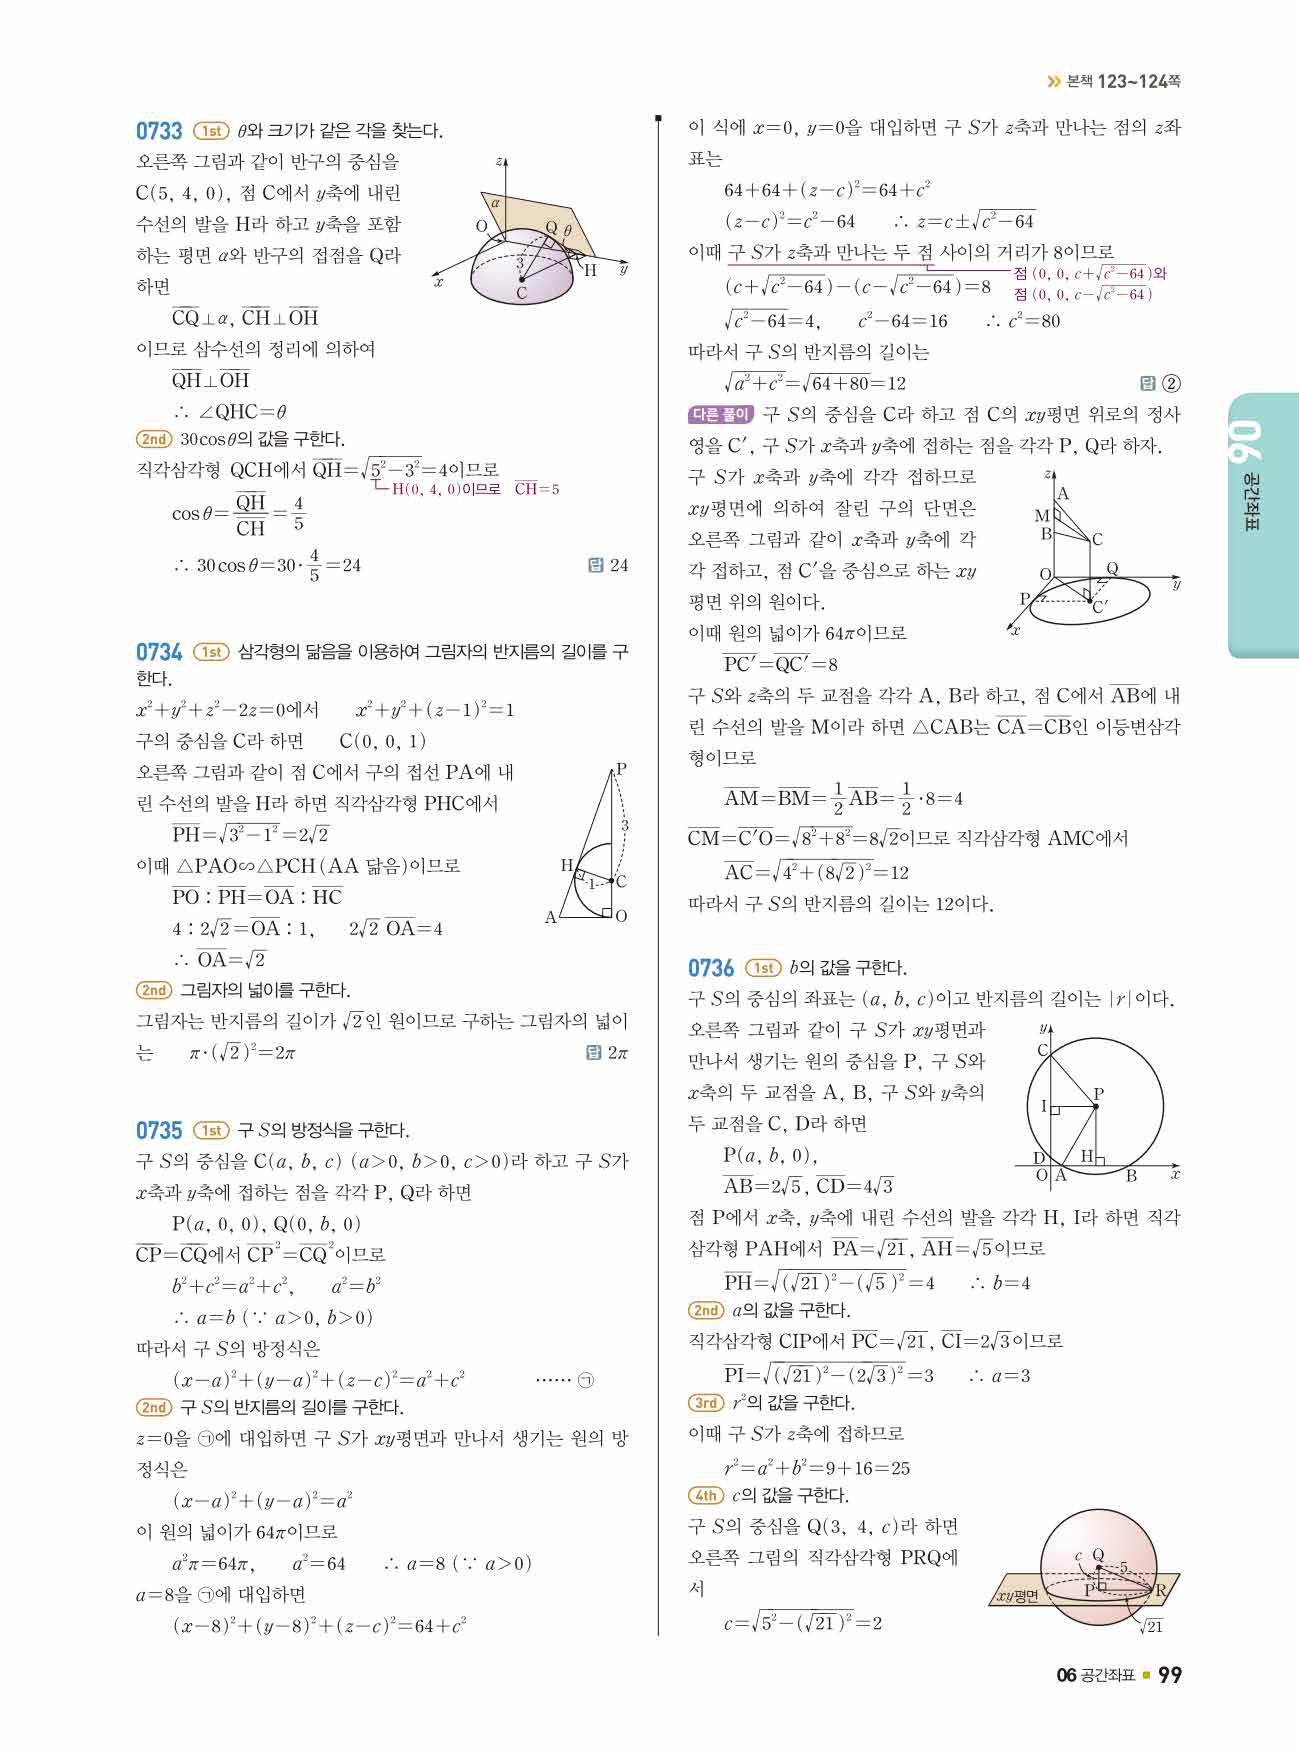 본책 123~124쪽
0733 1st θ와 크기가 같은 각을 찾는다.
오른쪽 그림과 같이 반구의 중심을
C(5, 4, 0), 점 C에서 y축에 내린
수선의 발을 H라 하고 y축을 포함
하는 평면 α와 반구의 접점을 Q라
하면
z
α
O
Q
θ
3
H
y
x
C
CQ⊥α, CH⊥OH
이므로 삼수선의 정리에 의하여
QH⊥OH
∴ ∠QHC=θ
2nd 30cosθ의 값을 구한다.
직각삼각형 QCH에서 QH=√(5²-3²)=4이므로
H(0, 4, 0)이므로 CH=5
cosθ=QH/CH=4/5
∴ 30cosθ=30·4/5=24
답 24
0734 1st 삼각형의 닮음을 이용하여 그림자의 반지름의 길이를 구
한다.
x²+y²+z²-2z=0에서 x²+y²+(z-1)²=1
구의 중심을 C라 하면 C(0, 0, 1)
오른쪽 그림과 같이 점 C에서 구의 접선 PA에 내
린 수선의 발을 H라 하면 직각삼각형 PHC에서
PH=√(3²-1²)=2√2
이때 △PAO∽△PCH(AA 닮음)이므로
PO : PH=OA : HC
4 : 2√2=OA : 1, 2√2 OA=4
∴ OA=√2
P
3
H
1
C
A
O
2nd 그림자의 넓이를 구한다.
그림자는 반지름의 길이가 √2인 원이므로 구하는 그림자의 넓이
는 π·(√2)²=2π
답 2π
0735 1st 구 S의 방정식을 구한다.
구 S의 중심을 C(a, b, c) (a>0, b>0, c>0)라 하고 구 S가
x축과 y축에 접하는 점을 각각 P, Q라 하면
P(a, 0, 0), Q(0, b, 0)
CP=CQ에서 CP²=CQ²이므로
b²+c²=a²+c², a²=b²
∴ a=b (∵ a>0, b>0)
따라서 구 S의 방정식은
(x-a)²+(y-a)²+(z-c)²=a²+c² …… ㉠
2nd 구 S의 반지름의 길이를 구한다.
z=0을 ㉠에 대입하면 구 S가 xy평면과 만나서 생기는 원의 방
정식은
(x-a)²+(y-a)²=a²
이 원의 넓이가 64π이므로
a²π=64π, a²=64 ∴ a=8 (∵ a>0)
a=8을 ㉠에 대입하면
(x-8)²+(y-8)²+(z-c)²=64+c²
이 식에 x=0, y=0을 대입하면 구 S가 z축과 만나는 점의 z좌
표는
64+64+(z-c)²=64+c²
(z-c)²=c²-64 ∴ z=c±√(c²-64)
이때 구 S가 z축과 만나는 두 점 사이의 거리가 8이므로
점 (0, 0, c+√(c²-64))와
점 (0, 0, c-√(c²-64))
(c+√(c²-64))-(c-√(c²-64))=8
√(c²-64)=4, c²-64=16 ∴ c²=80
따라서 구 S의 반지름의 길이는
√(a²+c²)=√(64+80)=12
답 ②
다른 풀이 구 S의 중심을 C라 하고 점 C의 xy평면 위로의 정사
영을 C′, 구 S가 x축과 y축에 접하는 점을 각각 P, Q라 하자.
구 S가 x축과 y축에 각각 접하므로
xy평면에 의하여 잘린 구의 단면은
오른쪽 그림과 같이 x축과 y축에 각
각 접하고, 점 C′을 중심으로 하는 xy
평면 위의 원이다.
이때 원의 넓이가 64π이므로
PC′=QC′=8
z
A
M
B
C
O
Q
y
P
C′
x
구 S와 z축의 두 교점을 각각 A, B라 하고, 점 C에서 AB에 내
린 수선의 발을 M이라 하면 △CAB는 CA=CB인 이등변삼각
형이므로
AM=BM=1/2AB=1/2·8=4
CM=C′O=√(8²+8²)=8√2이므로 직각삼각형 AMC에서
AC=√(4²+(8√2)²)=12
따라서 구 S의 반지름의 길이는 12이다.
0736 1st b의 값을 구한다.
구 S의 중심의 좌표는 (a, b, c)이고 반지름의 길이는 |r|이다.
오른쪽 그림과 같이 구 S가 xy평면과
만나서 생기는 원의 중심을 P, 구 S와
x축의 두 교점을 A, B, 구 S와 y축의
두 교점을 C, D라 하면
P(a, b, 0),
AB=2√5, CD=4√3
y
C
P
I
D
H
O
A
B
x
점 P에서 x축, y축에 내린 수선의 발을 각각 H, I라 하면 직각
삼각형 PAH에서 PA=√21, AH=√5이므로
PH=√((√21)²-(√5)²)=4 ∴ b=4
2nd a의 값을 구한다.
직각삼각형 CIP에서 PC=√21, CI=2√3이므로
PI=√((√21)²-(2√3)²)=3 ∴ a=3
3rd r²의 값을 구한다.
이때 구 S가 z축에 접하므로
r²=a²+b²=9+16=25
4th c의 값을 구한다.
구 S의 중심을 Q(3, 4, c)라 하면
오른쪽 그림의 직각삼각형 PRQ에
서
c=√(5²-(√21)²)=2
c
Q
5
P
R
xy평면
√21
06
공간좌표
06 공간좌표 99